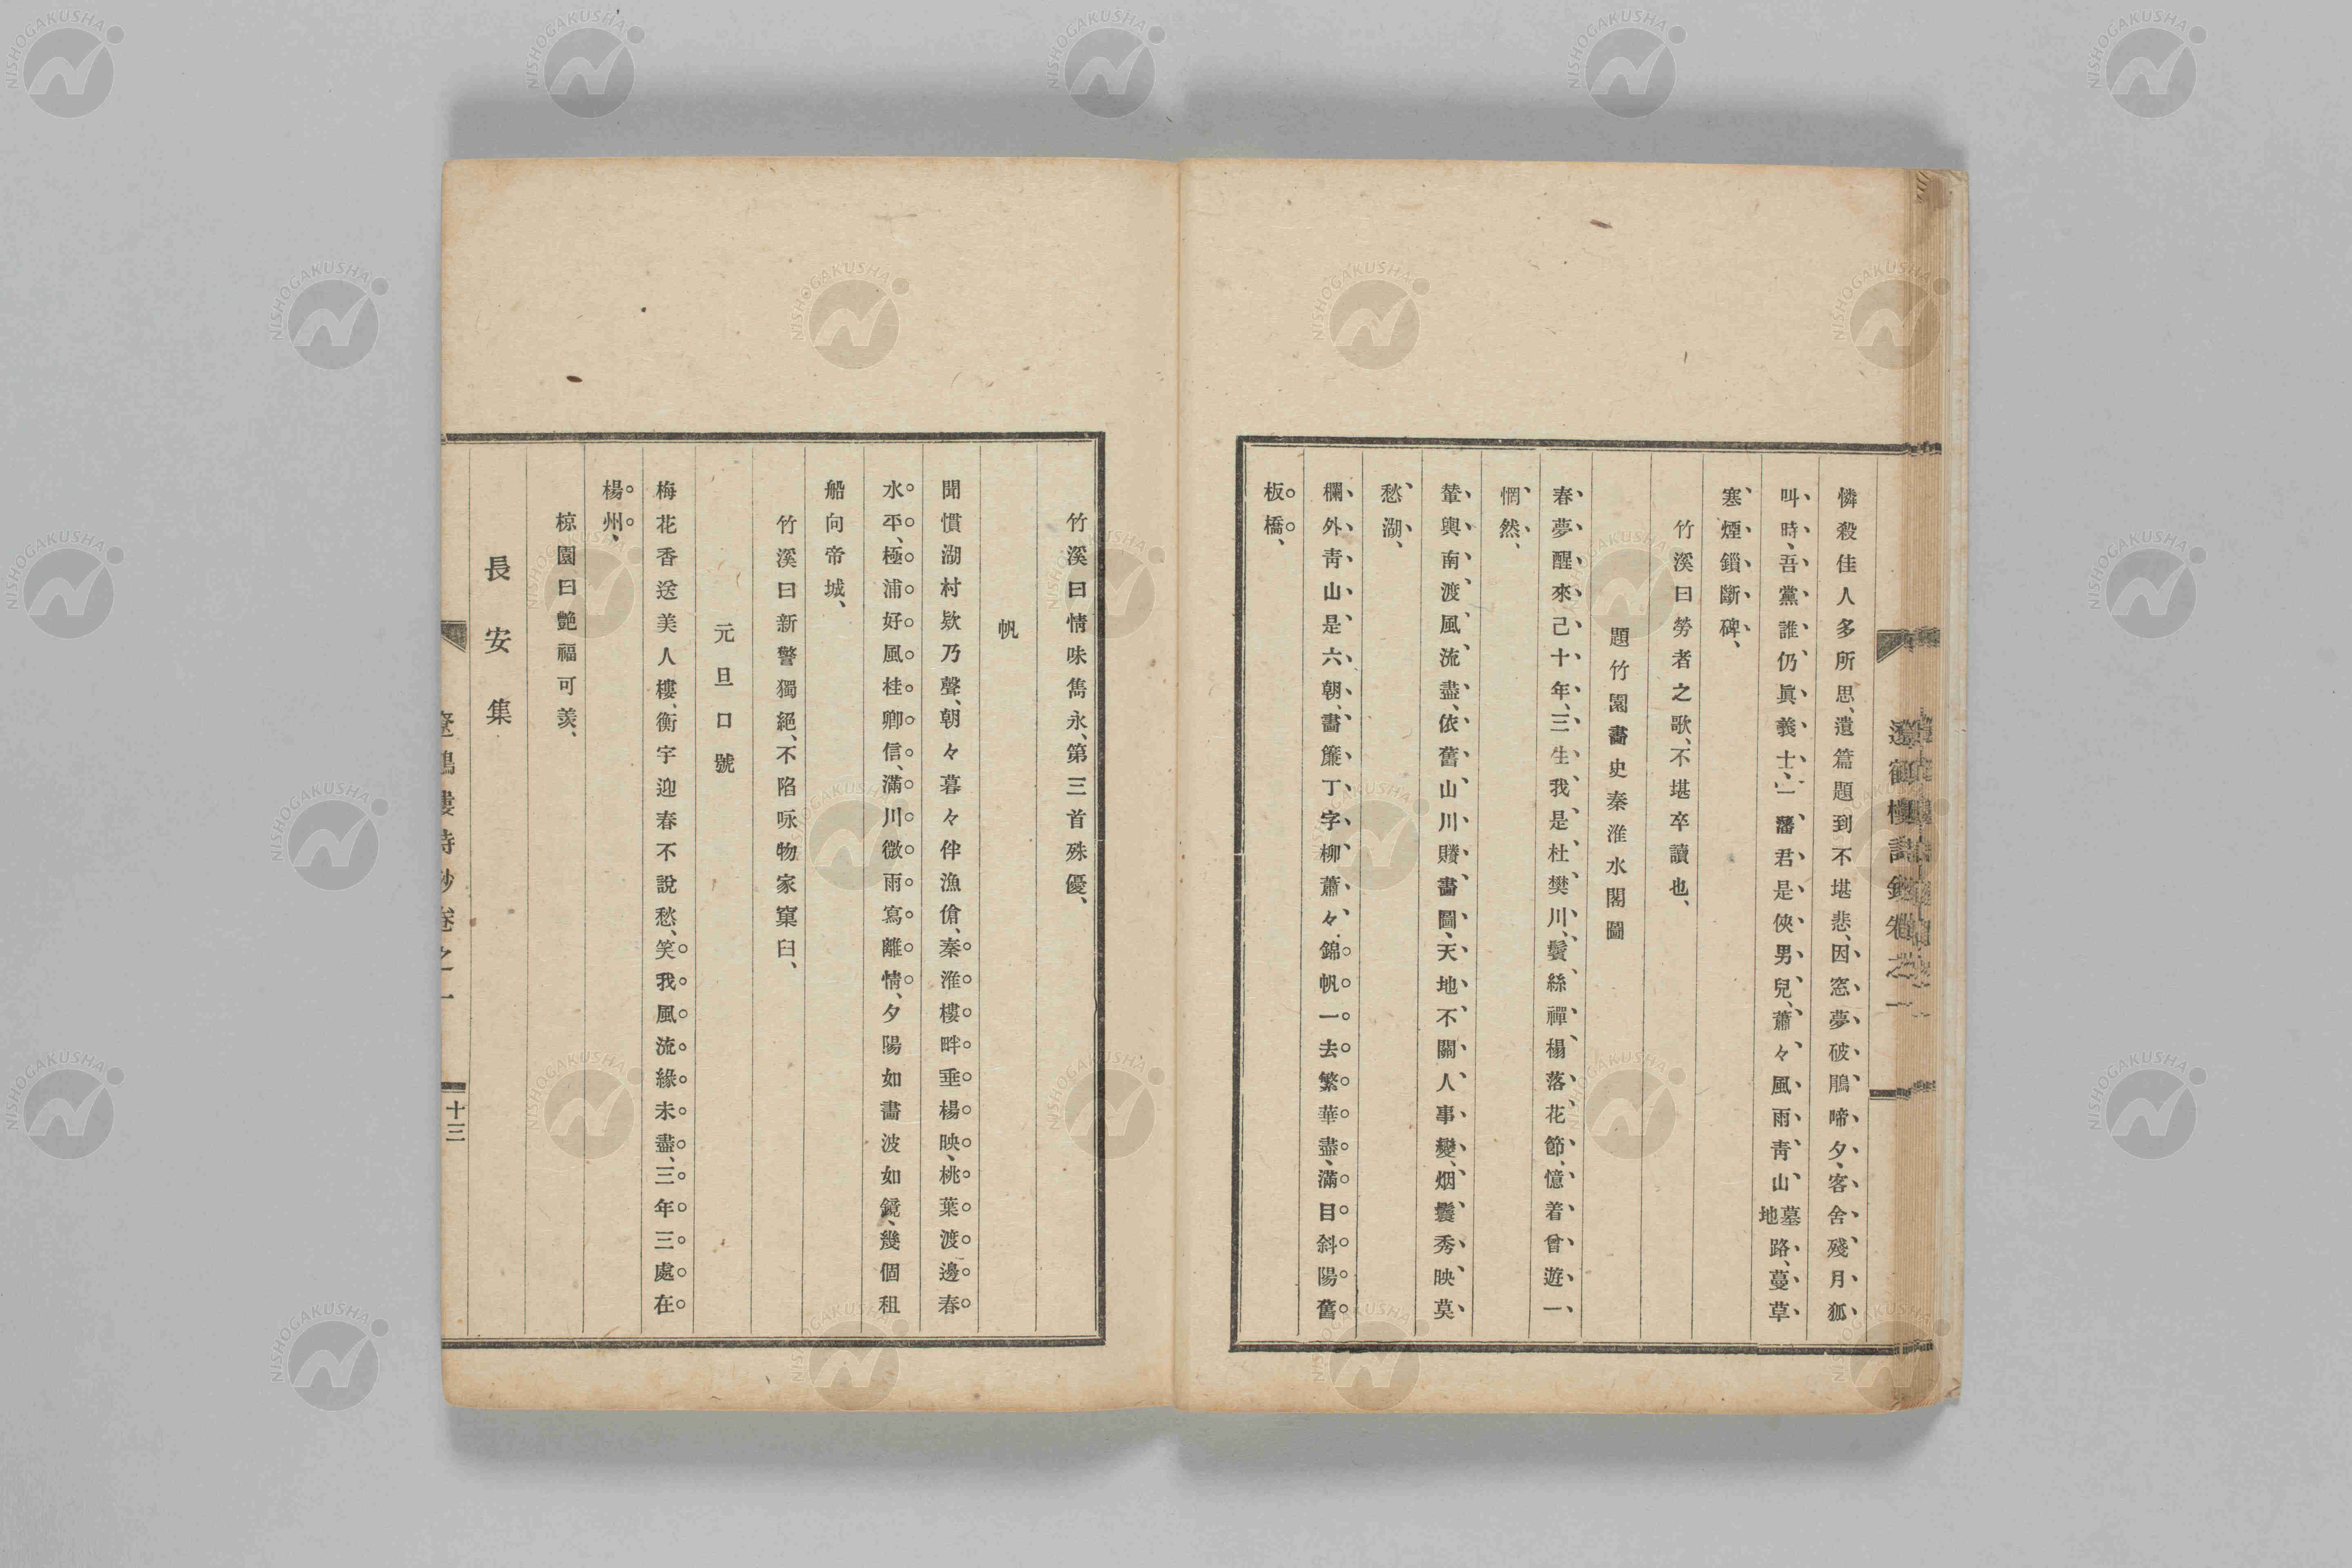 憐殺佳人多所思、遺篇題到不堪悲、因窓夢破鵑啼夕、客舍殘月狐
叫時、吾黨誰仍眞義士、一藩君是俠男兒、蕭々風雨靑山墓地路、蔓草
塞煙鎻斷碑、
竹溪曰勞者之歌、不堪卒讀也、
題竹園畵史秦淮水閣圖
春夢醒來己十年、三生我是杜樊川、鬢絲禪榻落花節、憶着曾遊一
惘然、
輦輿南渡風流盡、依舊山川賸畵圖、天地不關人事變、烟鬟秀映莫
愁湖、
欄外靑山是六朝、畵簾丁字柳蕭々、錦帆一去繁華盡、滿目斜陽舊
板橋、
竹溪曰情味雋永、第三首殊優、
帆
聞慣湖村欵乃聲、朝々暮々伴漁傖、秦淮樓畔垂楊映、桃葉渡邊春
水平、極浦好風桂卿信、滿川微雨寫離情、夕陽如畵波如鏡、幾個租
船向帝城、
竹溪曰新警獨絕、不陷咏物家窠臼、
元旦口號
梅花香送美人樓、衡宇迎春不說愁、笑我風流緣未盡、三年三處在
楊州、
椋園曰艶福可羨、
長安集
十三
NISHOGAKUSHA